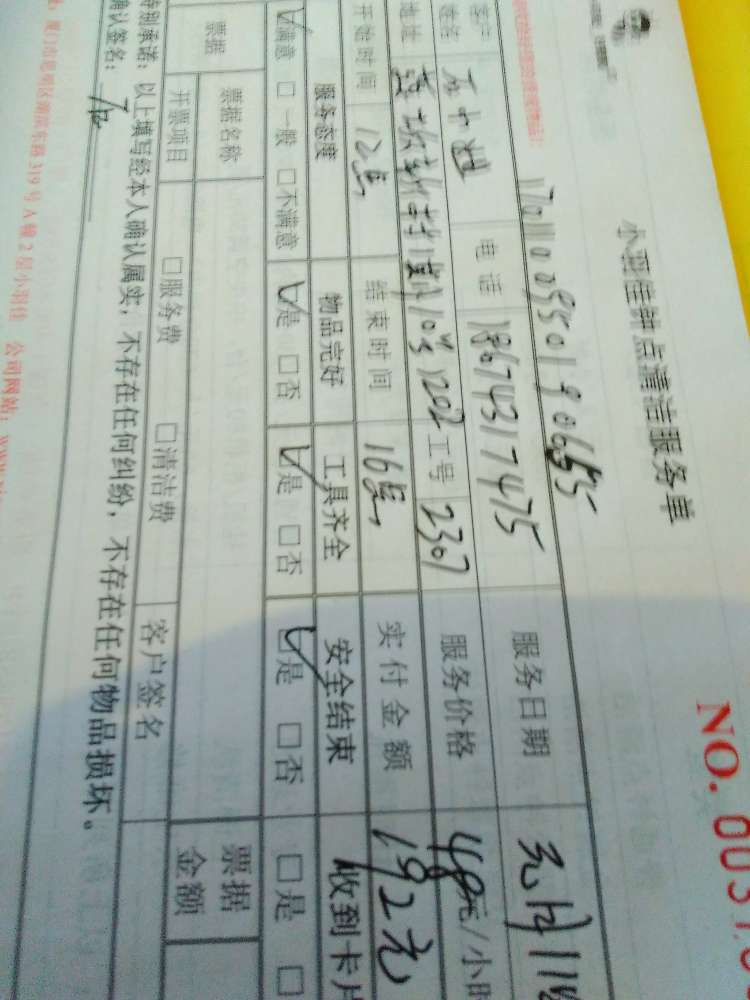 小羽佳钟点清洁服务单
NO. 0031
客户姓名 石小姐 电话 18674317475 服务日期 元月11
地址 1202 工号 2307 服务价格 48元/小时
开始时间 12点 结束时间 16点 实付金额 192元
服务态度 物品完好 工具齐全 安全结束 收到卡片
☑满意 □一般 □不满意 ☑是 □否 ☑是 □否 ☑是 □否 □是 □
票据 票据名称 票据金额
开票项目 □服务费 □清洁费 客户签名
特别承诺：以上填写经本人确认属实，不存在任何纠纷，不存在任何物品损坏。
确认签名：
厦门市思明区湖滨东路319号A幢2层小羽佳 公司网站：